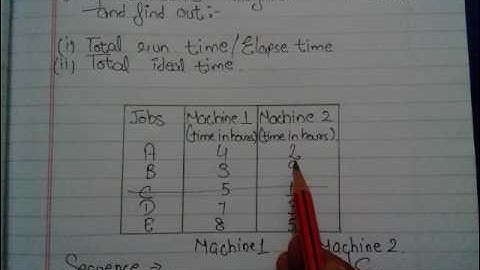 and find out:-
(i) Total run time/Elapse time
(ii) Total ideal time.
Jobs Machine 1 Machine 2
(time in hours) (time in hours)
A 4 2
B 3
C 5
D 7
E 8
Machine 1 Machine 2
Sequence →